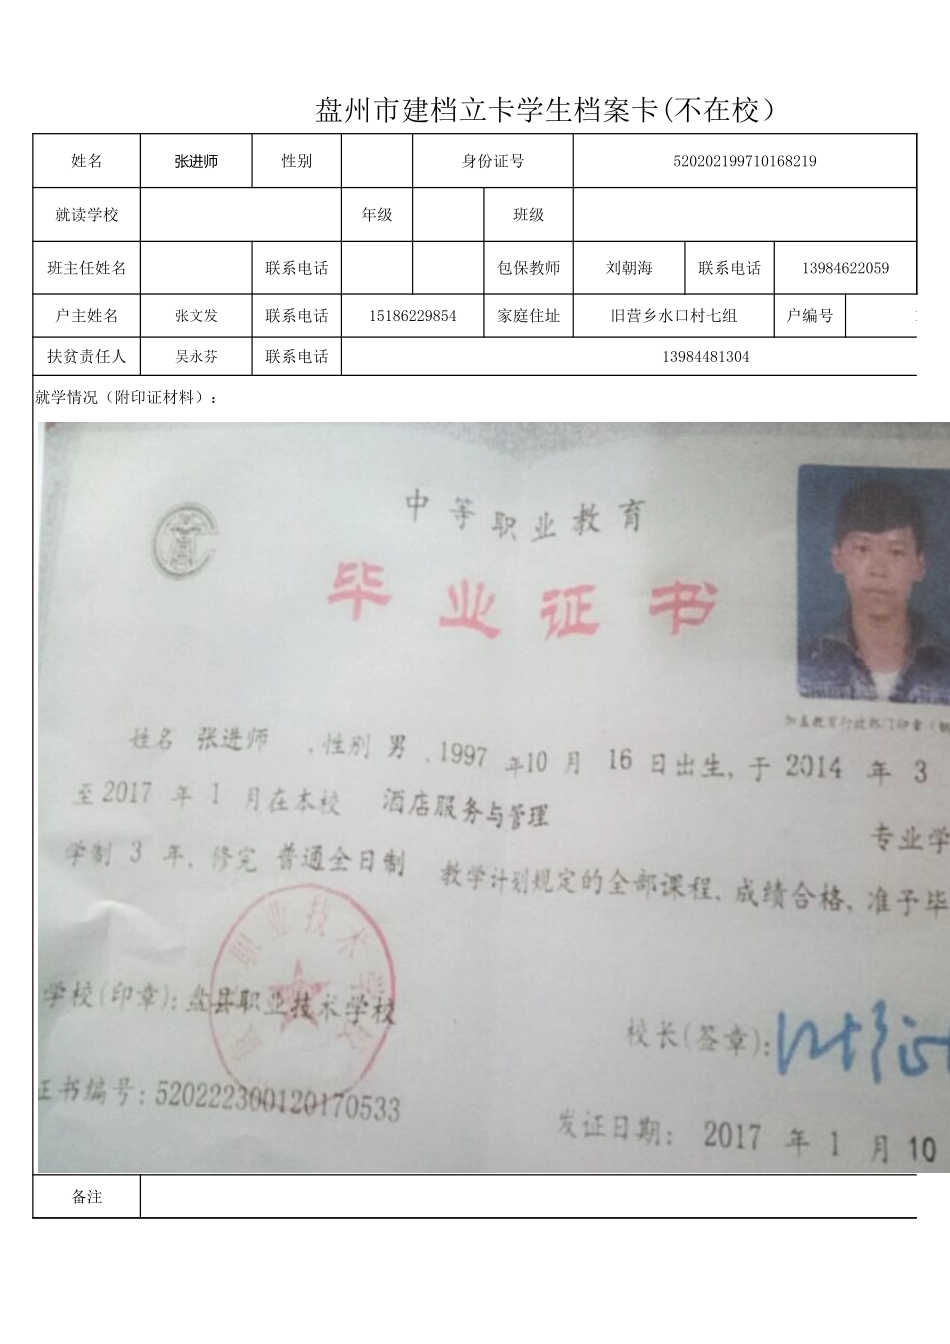 盘州市建档立卡学生档案卡(不在校）
姓名 张进师 性别 身份证号 520202199710168219
就读学校 年级 班级
班主任姓名 联系电话 包保教师 刘朝海 联系电话 13984622059
户主姓名 张文发 联系电话 15186229854 家庭住址 旧营乡水口村七组 户编号
扶贫责任人 吴永芬 联系电话 13984481304
就学情况（附印证材料）：
中等职业教育
毕业证书
加盖教育行政部门印章（钢
姓名 张进师 ，性别 男 ，1997 年10 月 16 日出生，于 2014 年 3
至 2017 年 1 月在本校 酒店服务与管理 专业学
学制 3 年，修完 普通全日制 教学计划规定的全部课程，成绩合格，准予毕
学校(印章)：盘县职业技术学校
校长(签章)：
证书编号：520222300120170533
发证日期： 2017 年 1 月 10
备注